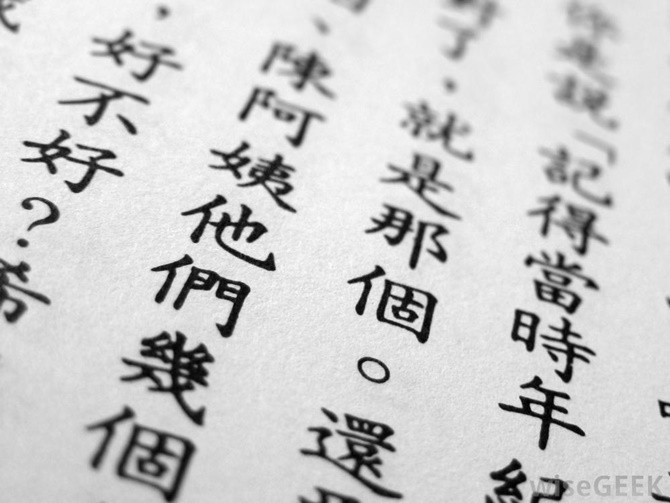 你是說「記得當時年
對了，就是那個。還
、陳阿姨他們幾個
，好不好？希
wiseGEEK